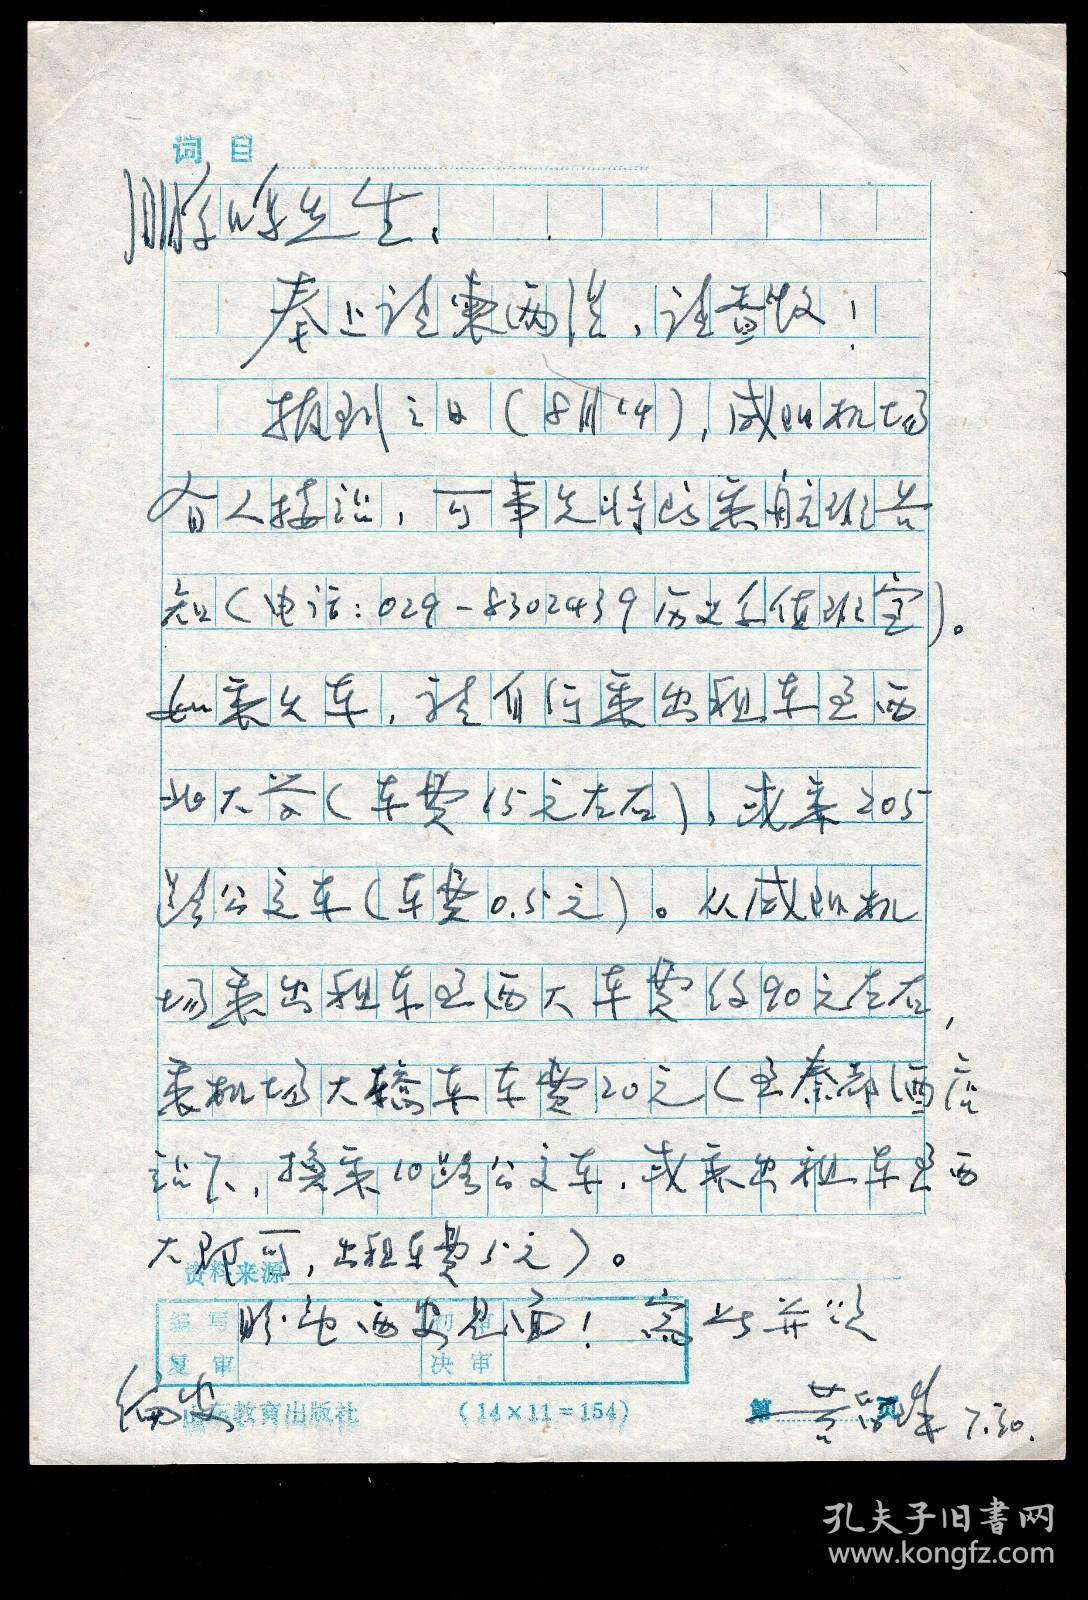 词目
先生:
奉上请柬两份,请查收!
报到之日(8月14),咸阳机场
有人接站,可事先将所乘航班告
知(电话:029-8302439历史系值班室)。
如乘火车,请自行乘出租车至西
北大学(车费15元左右),或乘205
路公交车(车费0.5元)。从咸阳机
场乘出租车至西大车费约90元左右,
乘机场大轿车车费20元(至秦都酒店
站下,换乘10路公交车,或乘出租车至西
大即可,出租车费5元)。
资料来源
编写 初审
盼望西安见面!专此并颂
复审 决审
编安
山东教育出版社 (14×11=154) 第 页
黄留珠 7.30.
孔夫子旧书网
www.kongfz.com